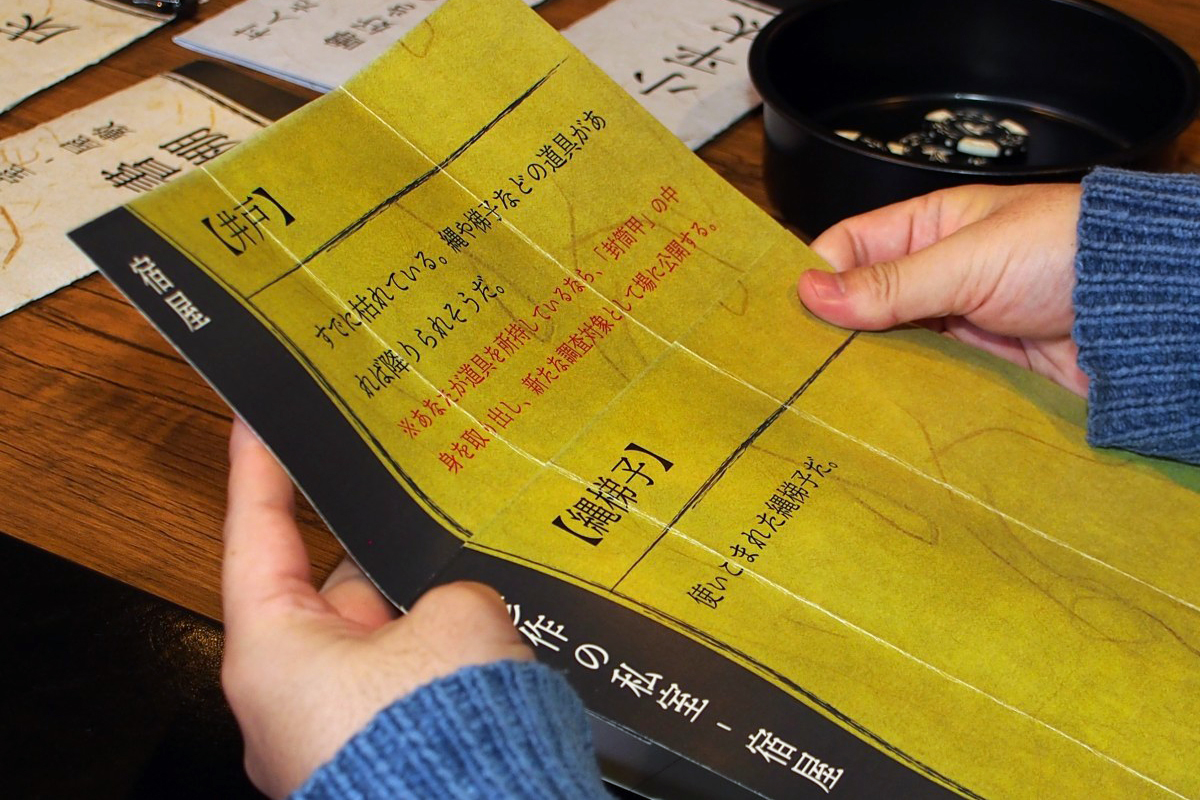 【井戸】
すでに枯れている。縄や梯子などの道具があ
れば降りられそうだ。
※あなたが道具を所持しているなら、「封筒甲」の中
身を取り出し、新たな調査対象として場に公開する。
宿屋
【縄梯子】
使いこまれた縄梯子だ。
作の私室 - 宿屋
書棚
小弁天